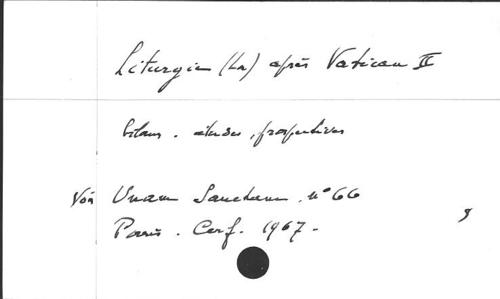 Liturgie (La) après Vatican II
bilans. études, prospectives
Voir Unam Sanctam. n° 66
Paris. Cerf. 1967.